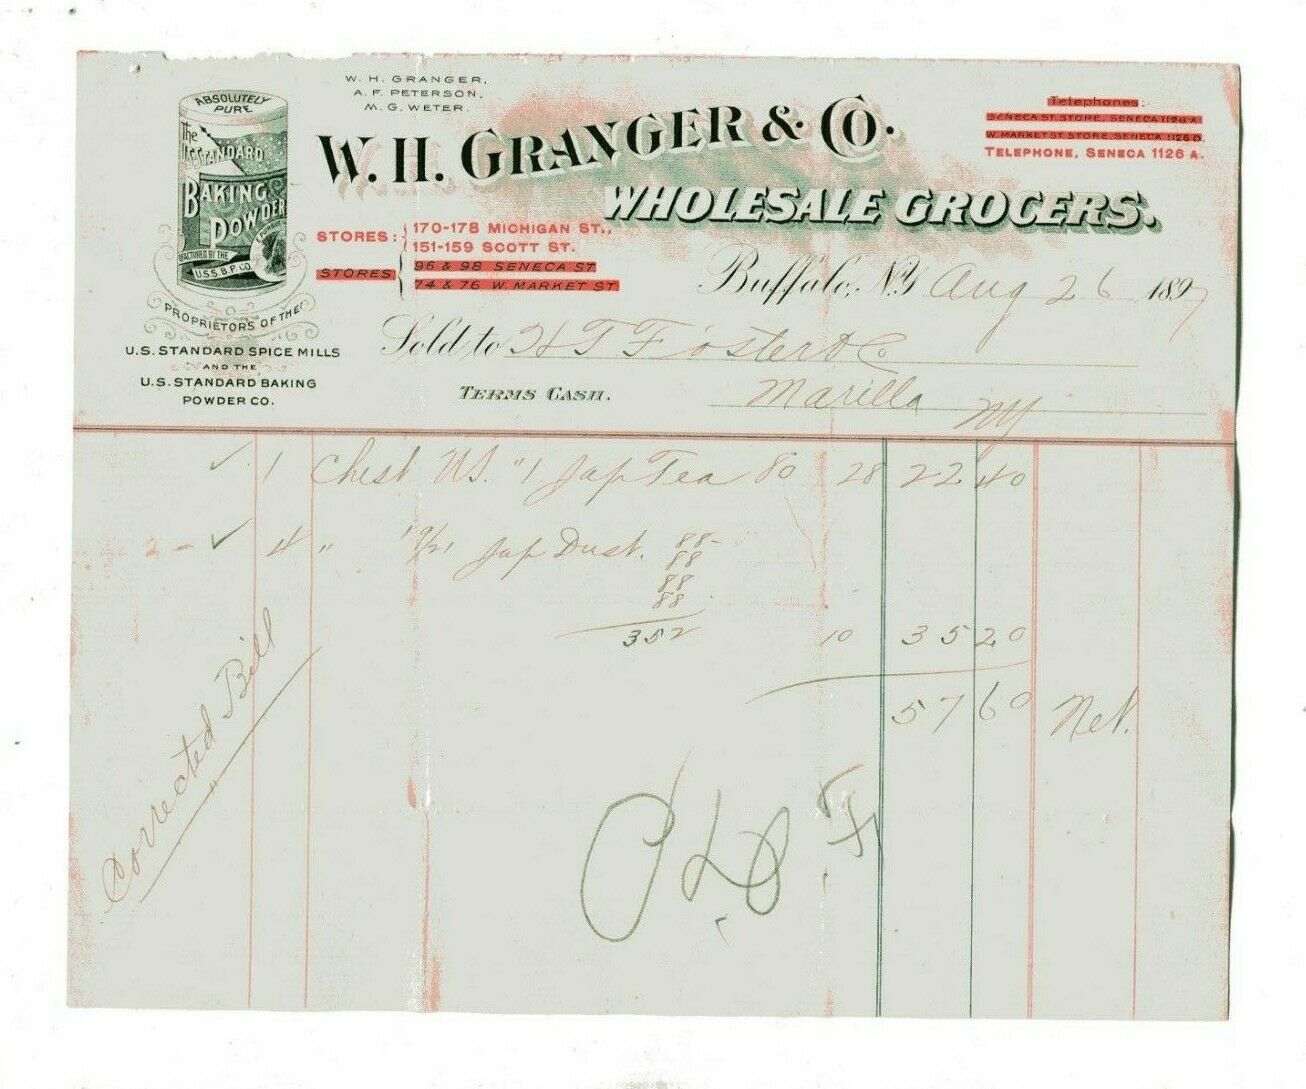 W. H. GRANGER,
A. F. PETERSON,
M. G. WETER.
ABSOLUTELY
PURE
The
U.S. STANDARD
BAKING
POWDER
U.S.S.B.P.CO.
PROPRIETORS OF THE
U.S. STANDARD SPICE MILLS
AND THE
U.S. STANDARD BAKING
POWDER CO.
W. H. GRANGER & CO.
WHOLESALE GROCERS.
Telephones:
SENECA ST. STORE, SENECA 1126 A
W. MARKET ST STORE, SENECA 1126 D
TELEPHONE, SENECA 1126 A.
STORES: 170-178 MICHIGAN ST.,
151-159 SCOTT ST.
STORES 96 & 98 SENECA ST
74 & 76 W. MARKET ST
Buffalo, N.Y. Aug 26 1897
Sold to H T Foster & Co
TERMS CASH.
Marilla NY
✓ 1 Chest US. "1 Jap Tea 80 28 22 40
2 - ✓ 4 " Jap Dust. 88-
88
88
88
352 10 35 20
57 60 Net.
Corrected Bill